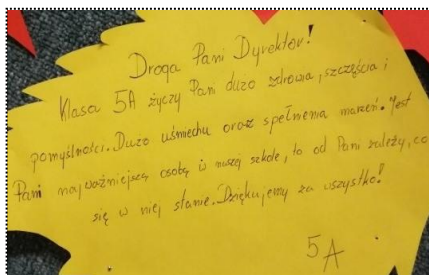 Droga Pani Dyrektor!
Klasa 5A życzy Pani dużo zdrowia, szczęścia i
pomyślności. Dużo uśmiechu oraz spełnienia marzeń. Jest
Pani najważniejszą osobą w naszej szkole, to od Pani zależy, co
się w niej stanie. Dziękujemy za wszystko!
5A